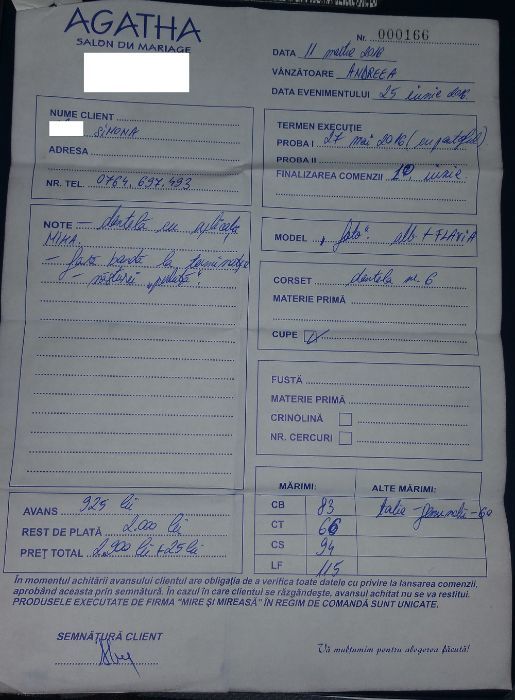 AGATHA
SALON DU MARIAGE
Nr. 000166
DATA 11 martie 2016
VÂNZĂTOARE ANDREEA
DATA EVENIMENTULUI 25 iunie 2016
NUME CLIENT
SIMONA
ADRESA
NR. TEL. 0764.697.493
TERMEN EXECUȚIE
PROBA I 27 mai 2016 (cu pantofii)
PROBA II
FINALIZAREA COMENZII 10 iunie
NOTE - dantelă cu aplicație
MIHA.
- fără bandă la terminație
- năsturei
MODEL alb + FLAVIA
CORSET dantela nr. 6
MATERIE PRIMĂ
CUPE
FUSTĂ
MATERIE PRIMĂ
CRINOLINĂ
NR. CERCURI
AVANS 925 lei
REST DE PLATĂ 2.000 lei
PREȚ TOTAL 2.900 lei + 25 lei
MĂRIMI: ALTE MĂRIMI:
CB 83 talie - genunchi - 60
CT 66
CS 94
LF 115
În momentul achitării avansului clientul are obligația de a verifica toate datele cu privire la lansarea comenzii,
aprobând aceasta prin semnătură. În cazul în care clientul se răzgândește, avansul achitat nu se va restitui.
PRODUSELE EXECUTATE DE FIRMA "MIRE ȘI MIREASĂ" ÎN REGIM DE COMANDĂ SUNT UNICATE.
SEMNĂTURĂ CLIENT
Vă mulțumim pentru alegerea făcută!